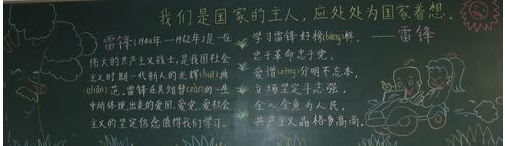 我们是国家的主人，应处处为国家着想。
——雷锋
雷锋(1940年—1962年)是一位
伟大的共产主义战士，是我国社会
主义时期一代新人的光辉(huī)典
(diǎn)范。雷锋在其短暂(zàn)的一生
中所体现出来的爱国、爱党、爱社会
主义的坚定信念值得我们学习。
学习雷锋好榜(bǎng)样，
忠于革命忠于党，
爱憎(zēng)分明不忘本，
立场坚定斗志强，
全心全意为人民，
共产主义品格多高尚。